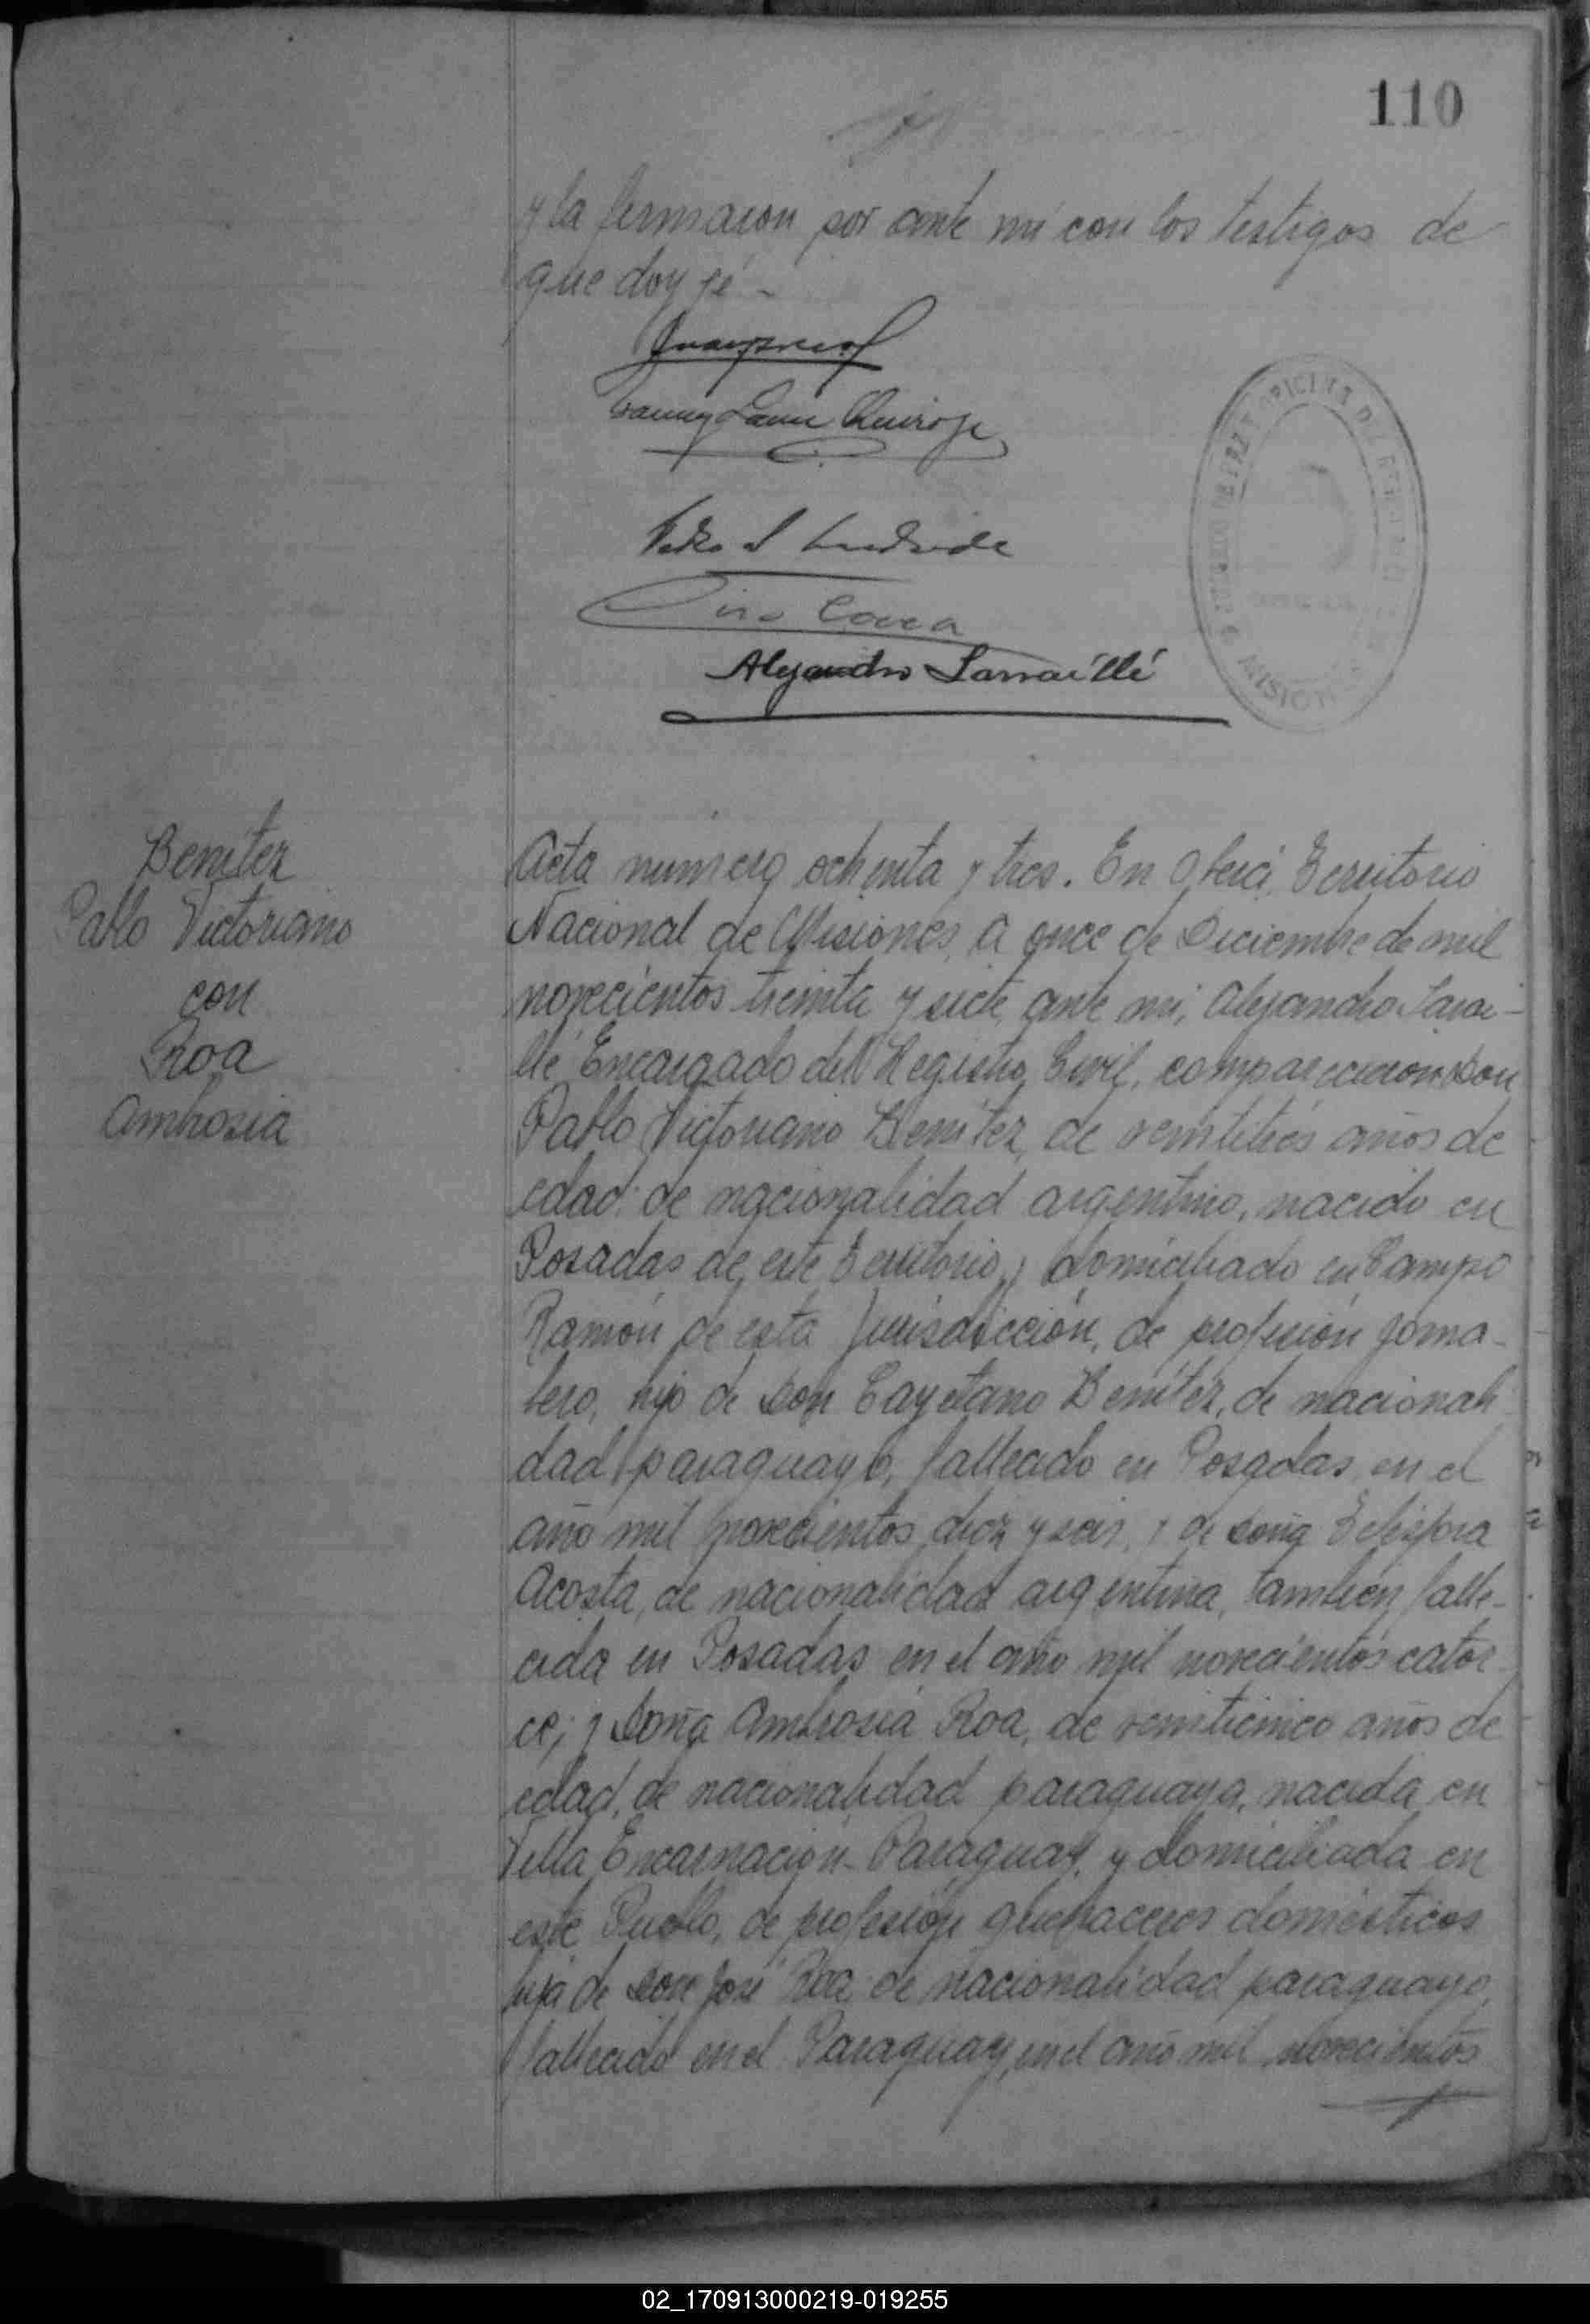 110
y la firmaron por ante mí con los testigos de
que doy fé -
Pedro S Andrade
Alejandro Sarraillé
OFICINA DE
MISIONES
Benítez
Pablo Victoriano
con
Roa
Ambrosia
Acta número ochenta y tres. En Oberá, Territorio
Nacional de Misiones, a once de Diciembre de mil
novecientos treinta y siete, ante mí, Alejandro Sarrai-
llé Encargado del Registro Civil, comparecieron Don
Pablo Victoriano Benítez, de veintitrés años de
edad, de nacionalidad argentino, nacido en
Posadas de este Territorio, y domiciliado en Campo
Ramón de esta Jurisdicción, de profesión jorna-
lero, hijo de Don Cayetano Benítez, de nacionali
dad paraguayo, fallecido en Posadas, en el
año mil novecientos diez y seis, y de Doña
Acosta, de nacionalidad argentina, también falle-
cida en Posadas en el año mil novecientos cator
ce; y Doña Ambrosia Roa, de veinticinco años de
edad, de nacionalidad paraguaya, nacida en
Villa Encarnación - Paraguay, y domiciliada en
este Pueblo, de profesión quehaceres domésticos
hija de Don José Roa de nacionalidad paraguayo,
fallecido en el Paraguay, en el año mil novecientos
02_170913000219-019255